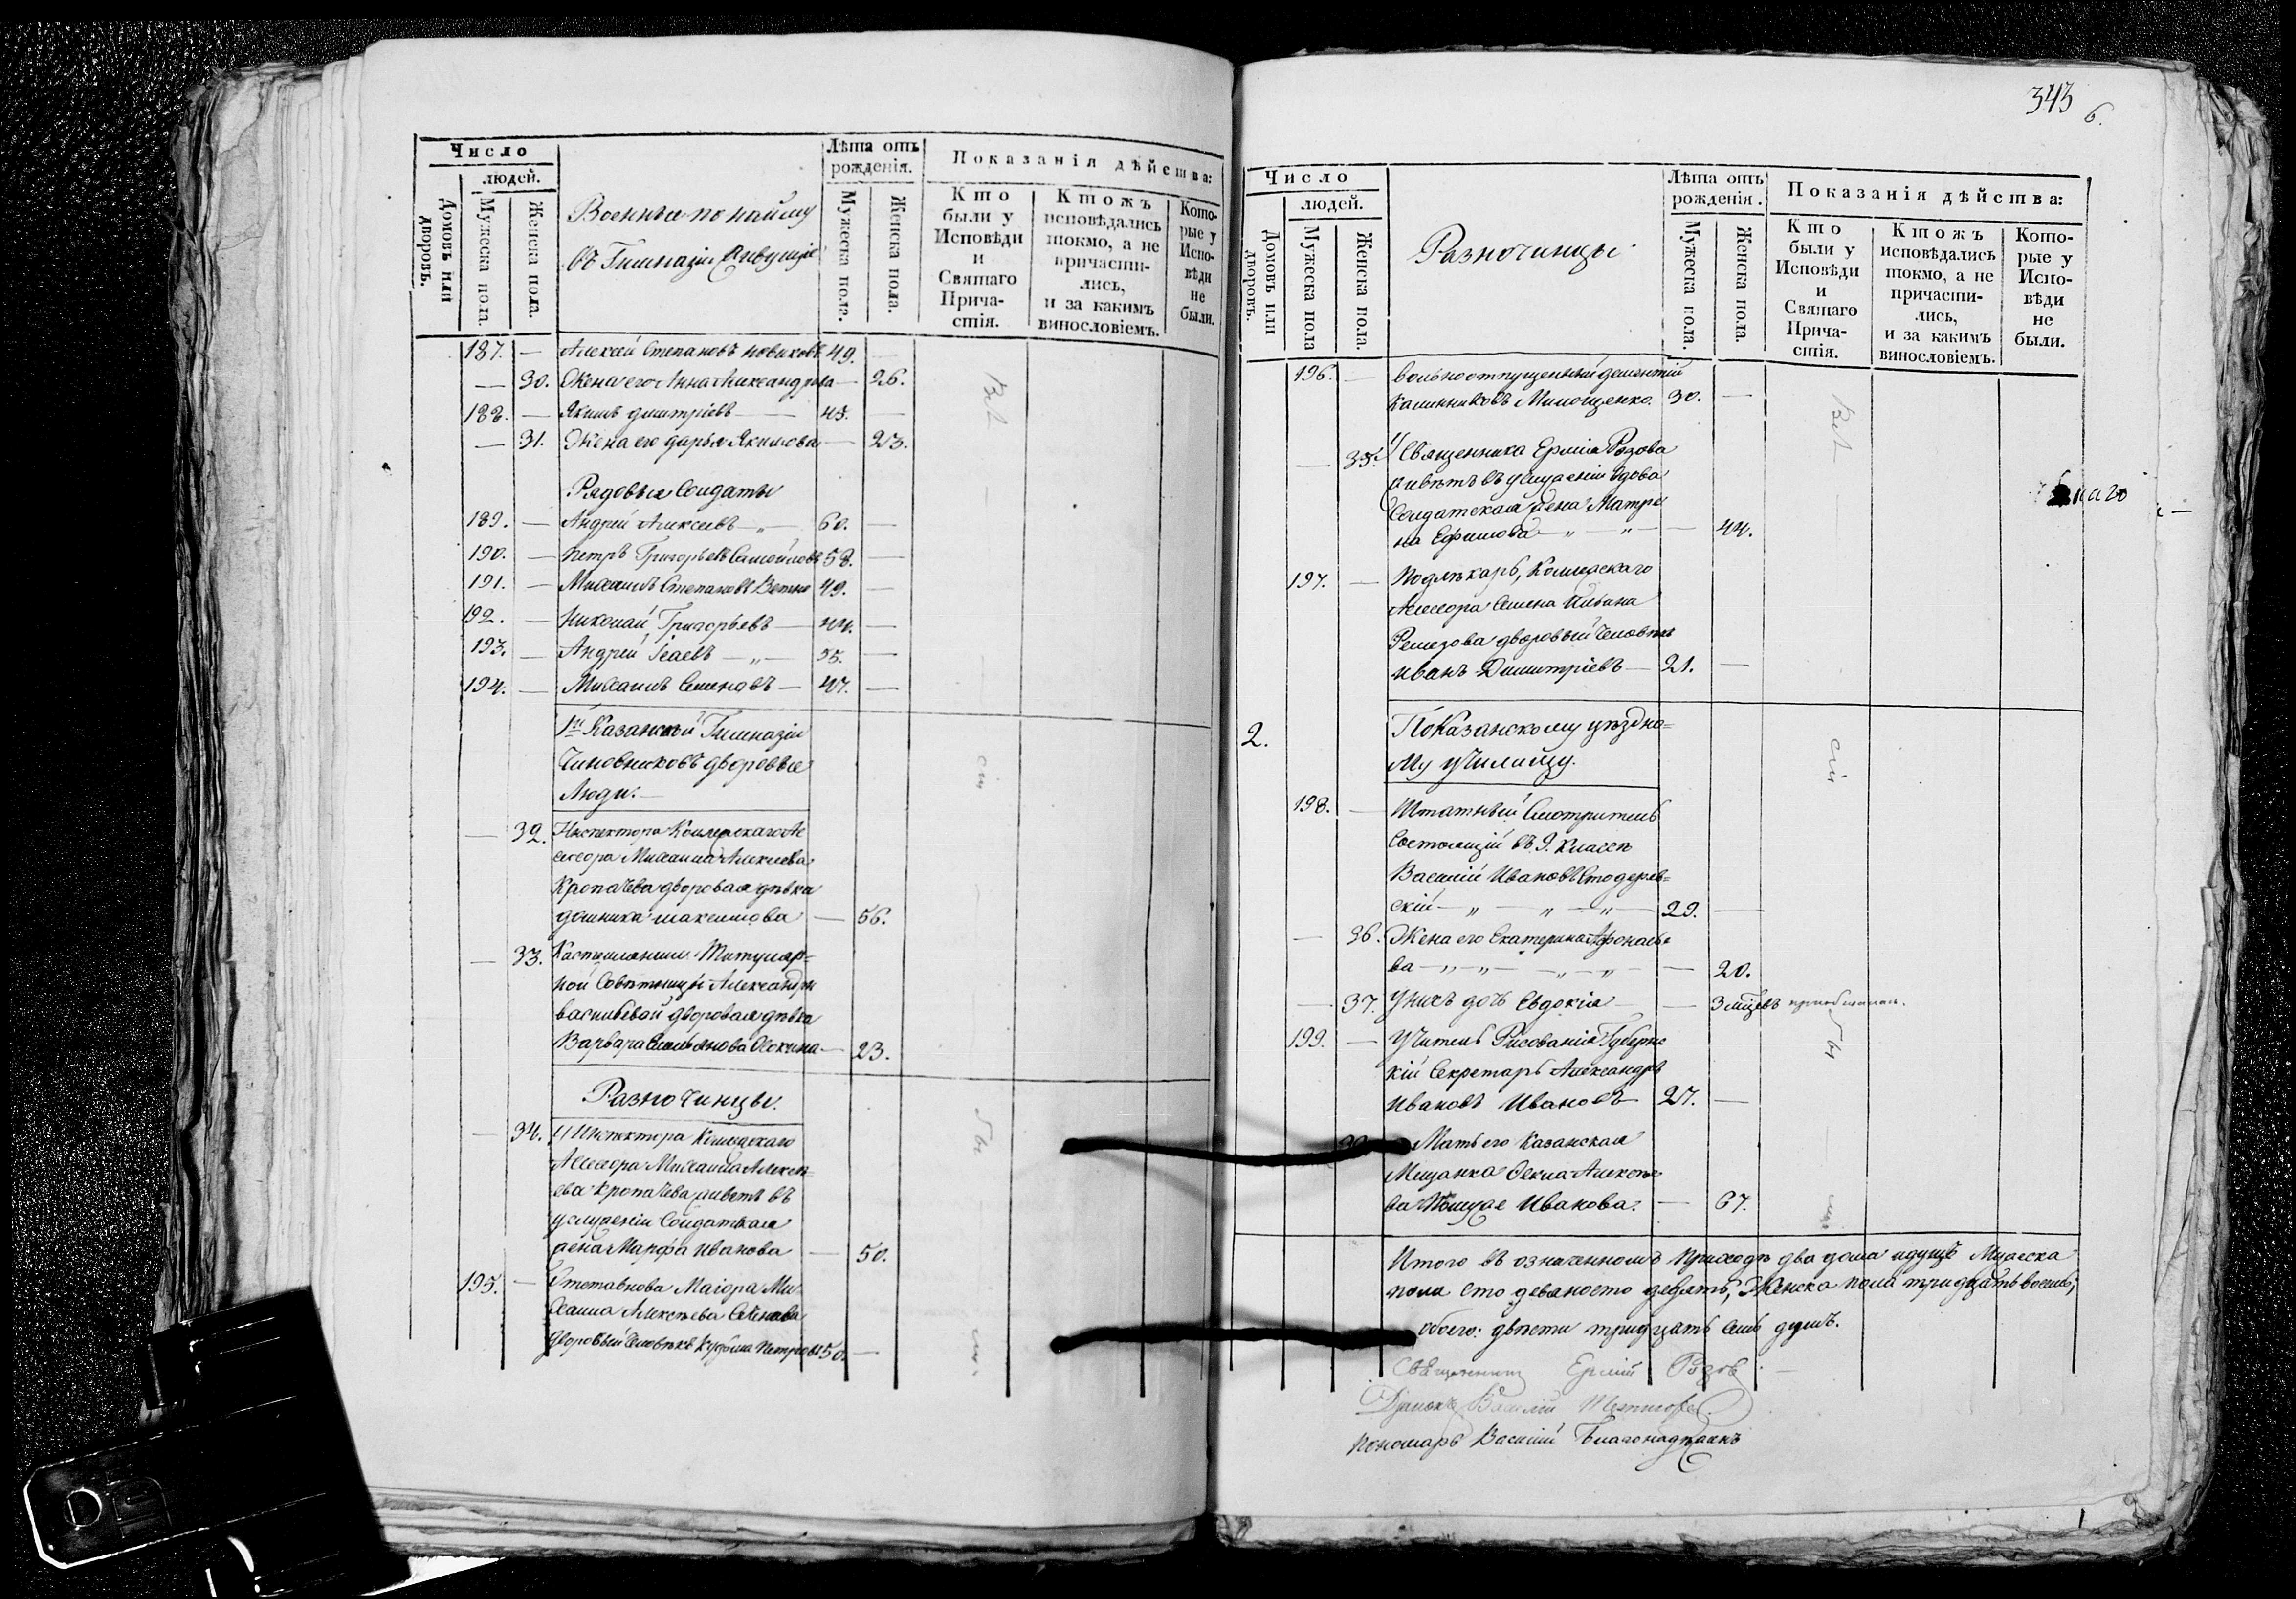 Число
людей.
Домовъ или дворовъ.
Мужеска пола.
Женска пола.
Военные по найму
въ Гимназіи живущіе
Лѣта отъ
рожденія.
Мужеска пола.
Женска пола.
Показанія дѣйства:
Кто
были у
Исповѣди
и
Святаго
Прича-
стія.
Ктожъ
исповѣдались
токмо, а не
причасти-
лись,
и за какимъ
винословіемъ.
Кото-
рые у
Испо-
вѣди
не
были.
187. — Алексѣй Степановъ Новиковъ 49. —
— 30. Жена его Анна Александрова — 26.
188. — Якимъ Дмитріевъ — 43. —
— 31. Жена его Дарья Якимова — 23.
Рядовые Солдаты
189. — Андрей Алексѣевъ — „ — 60. —
190. — Петръ Григорьевъ Самойловъ 58. —
191. — Михаилъ Степановъ 49. —
192. — Николай Григорьевъ — 44. —
193. — Андрей Ісаевъ — „ — 35. —
194. — Михаилъ Семеновъ — 47. —
1й Казанской Гимназіи
Чиновниковъ дворовые
Люди. —
— 32. Инспектора Коллежскаго Ас
сесора Михаила Алексѣева
Кропачева дворовая дѣвка
Домника Максимова — 56.
— 33. Кастелянши Титуляр-
ной Совѣтницы Александры
Васильевой дворовая дѣвка
Варвара — 23.
Разночинцы.
— 34. У Инспектора Коллежскаго
Ассесора Михаила Алексѣ-
ева Кропачева живетъ въ
услуженіи Солдатская
жена Марфа Иванова — 50.
195. — Отставнова Маіора Ми-
хаила Алексѣева
Дворовый Человѣкъ Кузьма Петровъ 50. —
343
6.
Число
людей.
Домовъ или дворовъ.
Мужеска пола
Женска пола.
Разночинцы
Лѣта отъ
рожденія.
Мужеска пола.
Женска пола
Показанія дѣйства:
Кто
были у
Исповѣди
и
Святаго
Прича-
стія.
Ктожъ
исповѣдались
токмо, а не
причасти-
лись,
и за какимъ
винословіемъ.
Кото-
рые у
Испо-
вѣди
не
были.
196. — Вольноотпущенный Дементій
Калинниковъ 30. —
— 35. У Священника Ермія Розова
живетъ въ услуженіи вдова
Солдатская жена Матре
на Ефимова — „ — „ — — 44.
197. — Подлѣкарь, Коллежскаго
Ассесора Семена Ильина
Ремезова дворовый Человѣкъ
Иванъ Димитріевъ — 21. —
2. По Казанскому уѣздно-
му училищу.
198. — Штатный Смотритель
Состоящій въ 9. классѣ
Василій Ивановъ Стодерев-
скій — „ — „ — „ — 29. —
— 36. Жена его Екатерина Афонасье
ва — „ — „ — „ — „ — — 20.
— 37. У нихъ дочь Евдокія — — 3 мѣсяцевъ
199. — Учитель Рисованія Губернс
кій Секретарь Александръ
Ивановъ Ивановъ 27. —
38. Мать его Казанская
Мещанка Фекла Алексѣе
ва Иванова. — 67.
Итого въ означенномъ Приходѣ два дома душъ Мужеска
пола сто девяносто девять, Женска пола тридцать восемь,
обоего: двѣсти тридцать семь душъ.
Священникъ Ермій Розовъ. —
Дьяконъ Василій
Пономарь Василій Благонадеждинъ